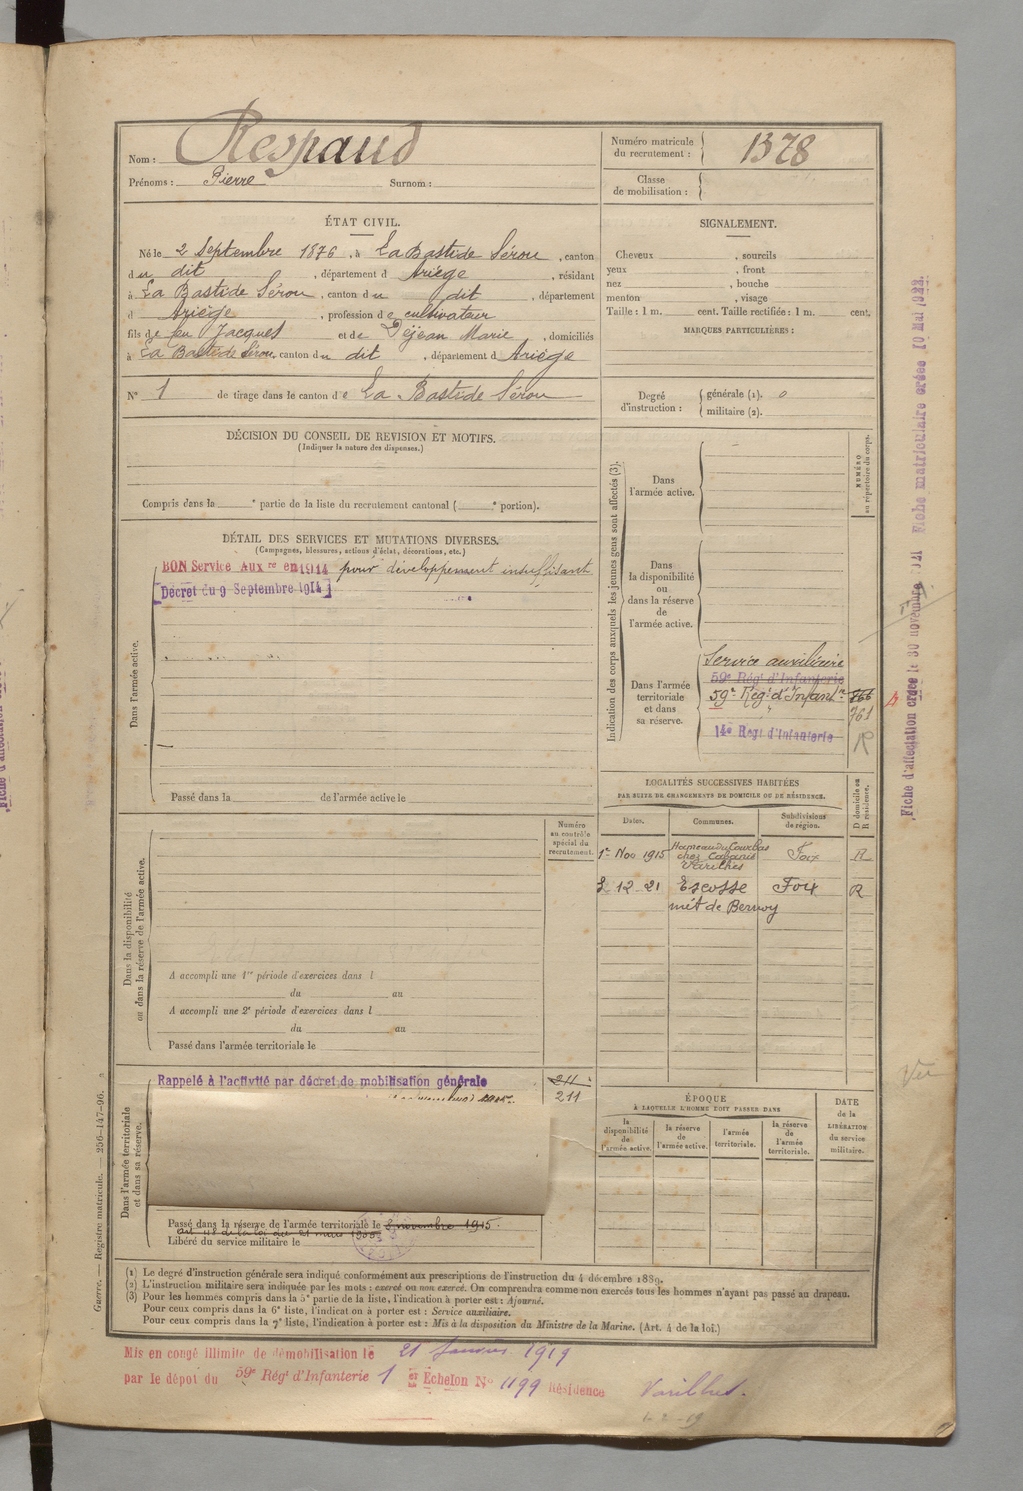 Nom : Respaud
Prénoms : Pierre Surnom :
Numéro matricule du recrutement : 1378
Classe de mobilisation :
ÉTAT CIVIL.
Né le 2 Septembre 1876, à La Bastide Sérou, canton
du dit, département d Ariège, résidant
à La Bastide Sérou, canton du dit, département
d Ariège, profession de cultivateur
fils de feu Jacques et de Déjean Marie, domiciliés
à La Bastide Sérou, canton du dit, département d Ariège
N° 1 de tirage dans le canton de La Bastide Sérou
SIGNALEMENT.
Cheveux , sourcils
yeux , front
nez , bouche
menton , visage
Taille : 1 m. cent. Taille rectifiée : 1 m. cent.
MARQUES PARTICULIÈRES :
Degré d'instruction : générale (1). 0
militaire (2).
DÉCISION DU CONSEIL DE REVISION ET MOTIFS.
(Indiquer la nature des dispenses.)
Compris dans la e partie de la liste du recrutement cantonal ( e portion).
DÉTAIL DES SERVICES ET MUTATIONS DIVERSES.
(Campagnes, blessures, actions d'éclat, décorations, etc.)
BON Service Aux re en 1914 pour développement insuffisant
Décret du 9 Septembre 1914
Dans l'armée active.
Passé dans la de l'armée active le
Indication des corps auxquels les jeunes gens sont affectés (3).
NUMÉRO au répertoire du corps.
Dans l'armée active.
Dans la disponibilité ou dans la réserve de l'armée active.
Dans l'armée territoriale et dans sa réserve.
Service auxiliaire
59e Régt d'Infanterie
59e Régt d'Infanrie 766
761
14e Regt d'Infanterie R
LOCALITÉS SUCCESSIVES HABITÉES
PAR SUITE DE CHANGEMENTS DE DOMICILE OU DE RÉSIDENCE.
D domicile ou R résidence.
Dates. Communes. Subdivisions de région.
1er Nov 1915 chez Cabanié Varilhes Foix R
2 12 21 Escosse Foix R
mét de Bernoy
Numéro au contrôle spécial du recrutement.
Dans la disponibilité ou dans la réserve de l'armée active.
A accompli une 1re période d'exercices dans l
du au
A accompli une 2e période d'exercices dans l
du au
Passé dans l'armée territoriale le
Dans l'armée territoriale et dans sa réserve.
Rappelé à l'activité par décret de mobilisation générale
211
211
Passé dans la réserve de l'armée territoriale le 3 novembre 1915.
art 48 de la loi du 21 mars 1905
Libéré du service militaire le
ÉPOQUE
À LAQUELLE L'HOMME DOIT PASSER DANS
la disponibilité de l'armée active.
la réserve de l'armée active.
l'armée territoriale.
la réserve de l'armée territoriale.
DATE de la LIBÉRATION du service militaire.
(1) Le degré d'instruction générale sera indiqué conformément aux prescriptions de l'instruction du 4 décembre 1889.
(2) L'instruction militaire sera indiquée par les mots : exercé ou non exercé. On comprendra comme non exercés tous les hommes n'ayant pas passé au drapeau.
(3) Pour les hommes compris dans la 5e partie de la liste, l'indication à porter est : Ajourné.
Pour ceux compris dans la 6e liste, l'indication à porter est : Service auxiliaire.
Pour ceux compris dans la 7e liste, l'indication à porter est : Mis à la disposition du Ministre de la Marine. (Art. 4 de la loi.)
Mis en congé illimité de démobilisation le 21 Janvier 1919
par le dépôt du 59e Régt d'Infanterie 1 er Echelon N° 1199 Résidence Varilhes.
1-2-19
Guerre. — Registre matricule. — 256-147-96.
Fiche d'affectation créée le 30 novembre 1921 Fiche matriculaire créée 10 Mai 1923.
Vu